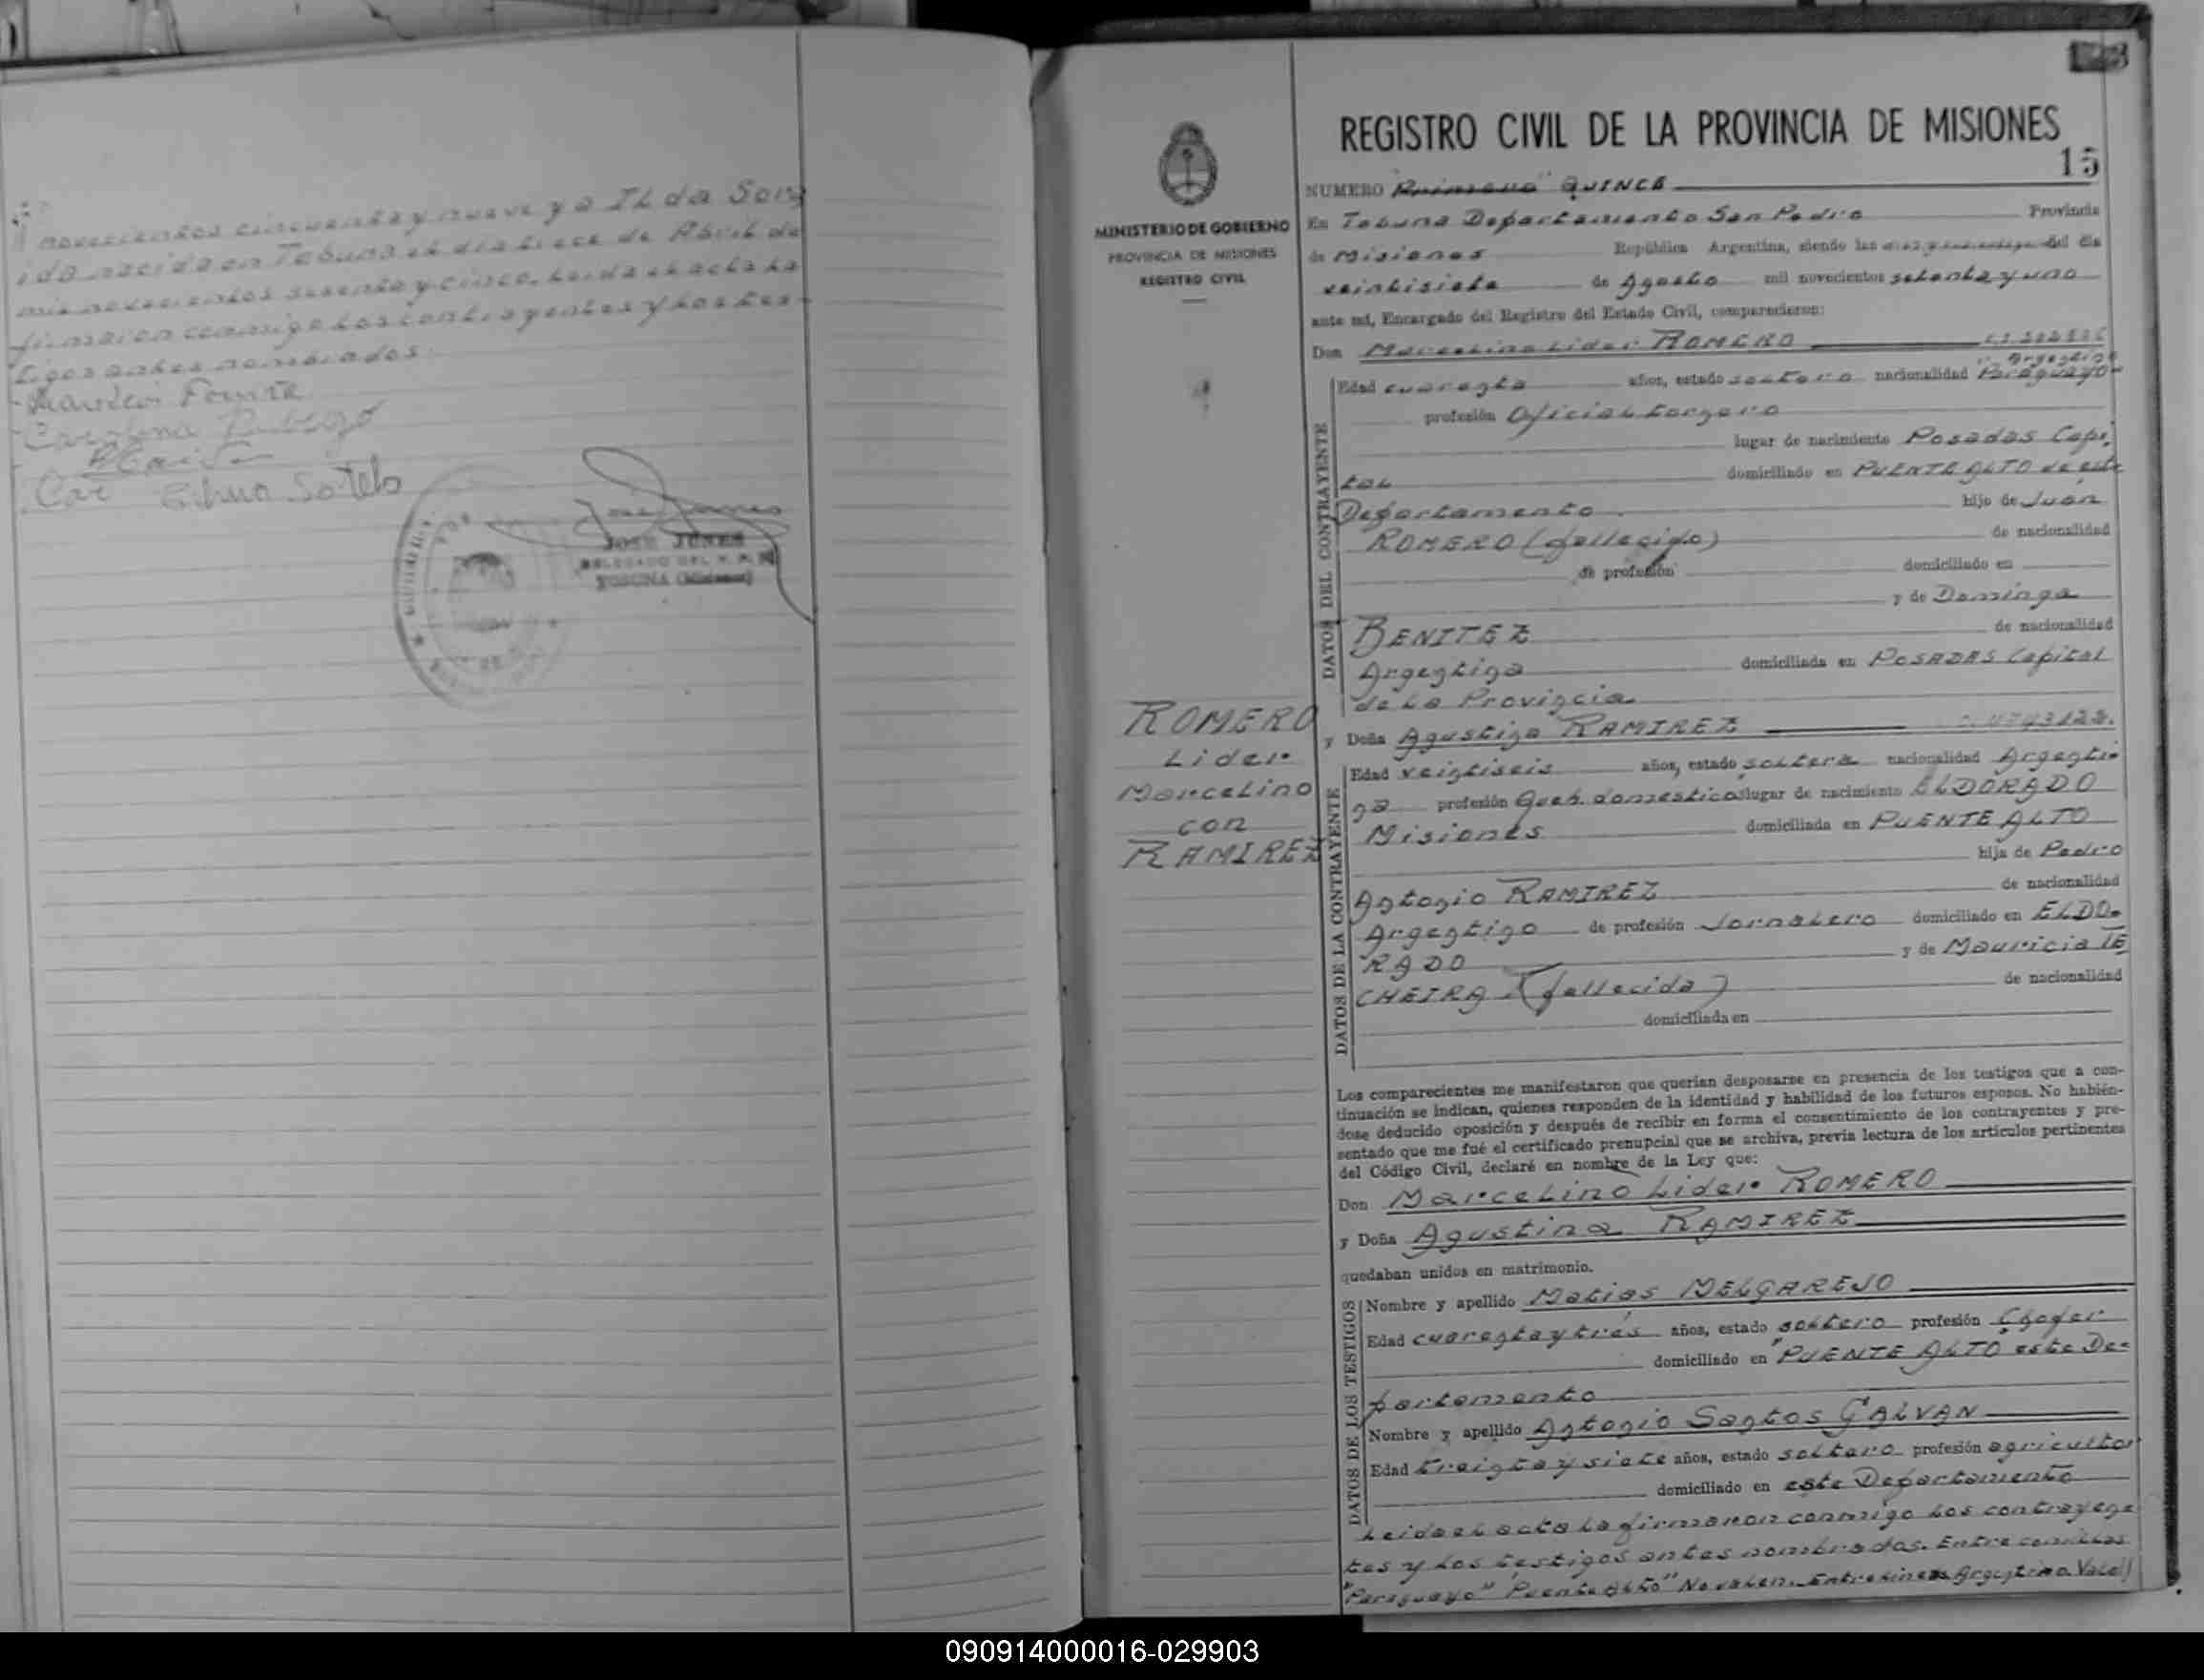 novecientos cincuenta y nueve y a Ilda Son
ida nacida en Tobuna el dia trece de Abril de
mil novecientos sesenta y cinco. Leida el acta la
firmaron conmigo los contrayentes y los tes-
tigos antes nombrados.
Carolina
Sotelo
JOSE JUNES
DELEGADO DEL R. P.
TOBUNA (Misiones)
MINISTERIO DE GOBIERNO
PROVINCIA DE MISIONES
REGISTRO CIVIL
ROMERO
Lider
Marcelino
con
RAMIREZ
REGISTRO CIVIL DE LA PROVINCIA DE MISIONES
15
NUMERO "Primero" QUINCE
En Tobuna Departamento San Pedro Provincia
de Misiones República Argentina, siendo las diez y del día
veintisiete de Agosto mil novecientos setenta y uno
ante mí, Encargado del Registro del Estado Civil, comparecieron:
Don Marcelino Lider ROMERO
Argentino
DATOS DEL CONTRAYENTE
Edad cuarenta años, estado soltero nacionalidad "Paraguayo"
profesión Oficial torgero
lugar de nacimiento Posadas Capi.
tal domiciliado en PUENTE ALTO de este
Departamento hijo de Juan
ROMERO (fallecido) de nacionalidad
de profesión domiciliado en
y de Dominga
BENITEZ de nacionalidad
Argentina domiciliada en POSADAS Capital
de la Provincia
y Doña Agustina RAMIREZ 4743122.
DATOS DE LA CONTRAYENTE
Edad veintiseis años, estado soltera nacionalidad Argenti-
na profesión Queh. domesticos lugar de nacimiento ELDORADO
Misiones domiciliada en PUENTE ALTO
hija de Pedro
Antonio RAMIREZ de nacionalidad
Argentino de profesión Jornalero domiciliado en ELDO-
RADO y de Mauricia TE
CHEIRA. (fallecida) de nacionalidad
domiciliada en
Los comparecientes me manifestaron que querían desposarse en presencia de los testigos que a con-
tinuación se indican, quienes responden de la identidad y habilidad de los futuros esposos. No habién-
dose deducido oposición y después de recibir en forma el consentimiento de los contrayentes y pre-
sentado que me fué el certificado prenupcial que se archiva, previa lectura de los artículos pertinentes
del Código Civil, declaré en nombre de la Ley que:
Don Marcelino Lider ROMERO
y Doña Agustina RAMIREZ
quedaban unidos en matrimonio.
DATOS DE LOS TESTIGOS
Nombre y apellido Matias MELGAREJO
Edad cuarenta y tres años, estado soltero profesión Chofer
domiciliado en "PUENTE ALTO" este De-
partamento
Nombre y apellido Antonio Santos GALVAN
Edad treinta y siete años, estado soltero profesión agricultor
domiciliado en este Departamento
Leida el acta la firmaron conmigo los contrayen-
tes y los testigos antes nombrados. Entre comillas
"Paraguayo" "Puente Alto" No valen. Entrelineas Argentino. Vale//
090914000016-029903